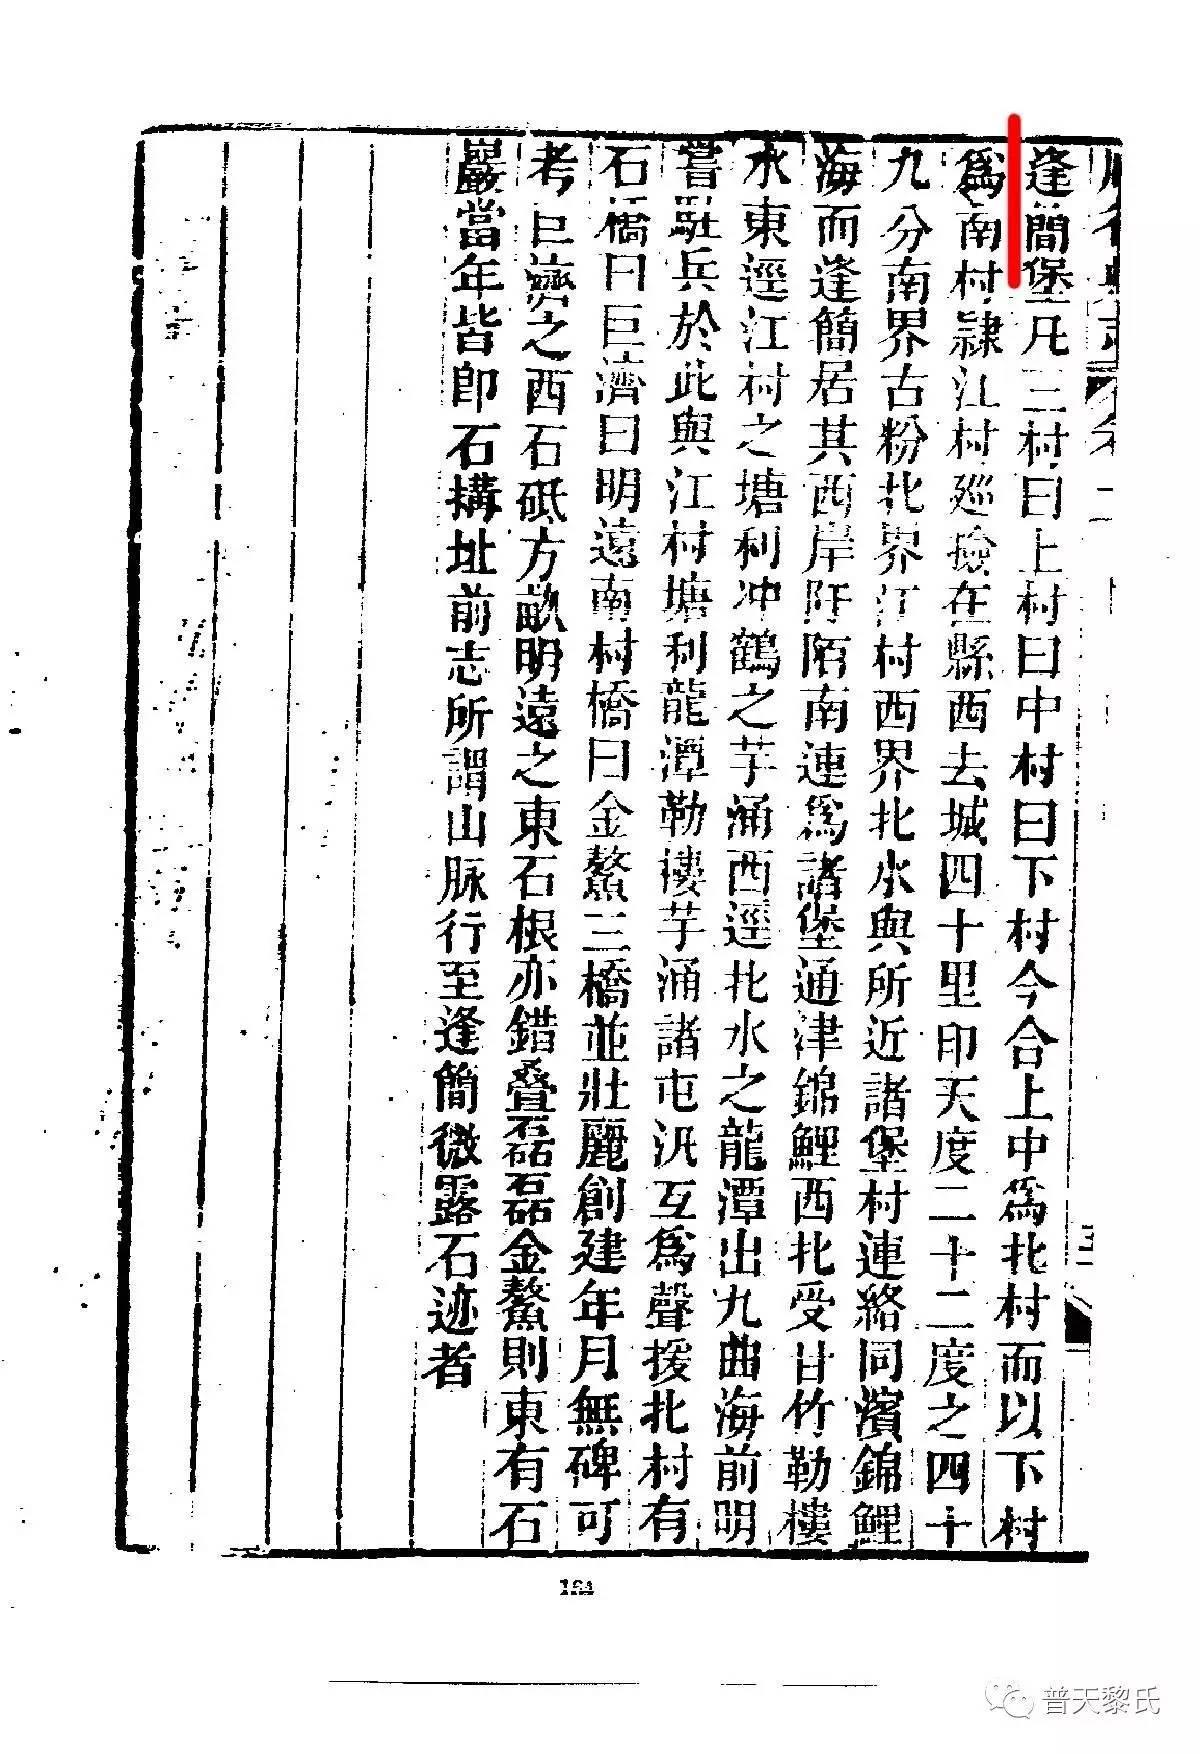 逢簡堡凡三村曰上村曰中村曰下村今合上中爲北村而以下村
爲南村隷江村廵檢在縣西去城四十里印天度二十二度之四十
九分南界古粉北界江村西界北水與所近諸堡村連絡同濱錦鯉
海而逢簡居其西岸阡陌南連爲諸堡通津錦鯉西北受甘竹勒樓
水東逕江村之塘利冲鶴之芋涌西逕北水之龍潭出九曲海前明
嘗駐兵於此與江村塘利龍潭勒樓芋涌諸屯汛互爲聲援北村有
石橋曰巨濟曰明遠南村橋曰金鰲三橋並壯麗創建年月無碑可
考巨濟之西石砥方畝明遠之東石根亦錯叠磊磊金鰲則東有石
巖當年皆卽石搆址前志所謂山脉行至逢簡微露石迹者
普天黎氏